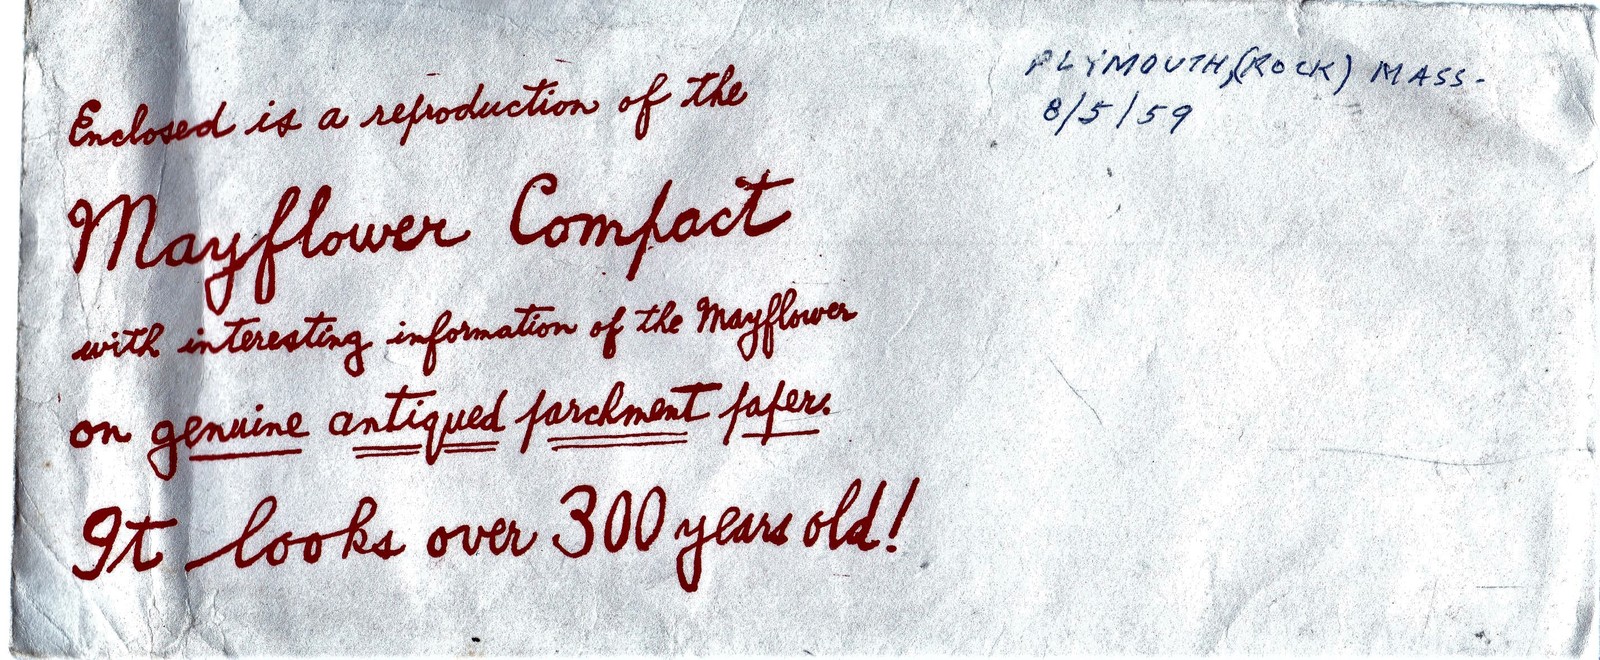 Enclosed is a reproduction of the
Mayflower Compact
with interesting information of the Mayflower
on genuine antiqued parchment paper.
It looks over 300 years old!
PLYMOUTH, (ROCK) MASS-
8/5/59